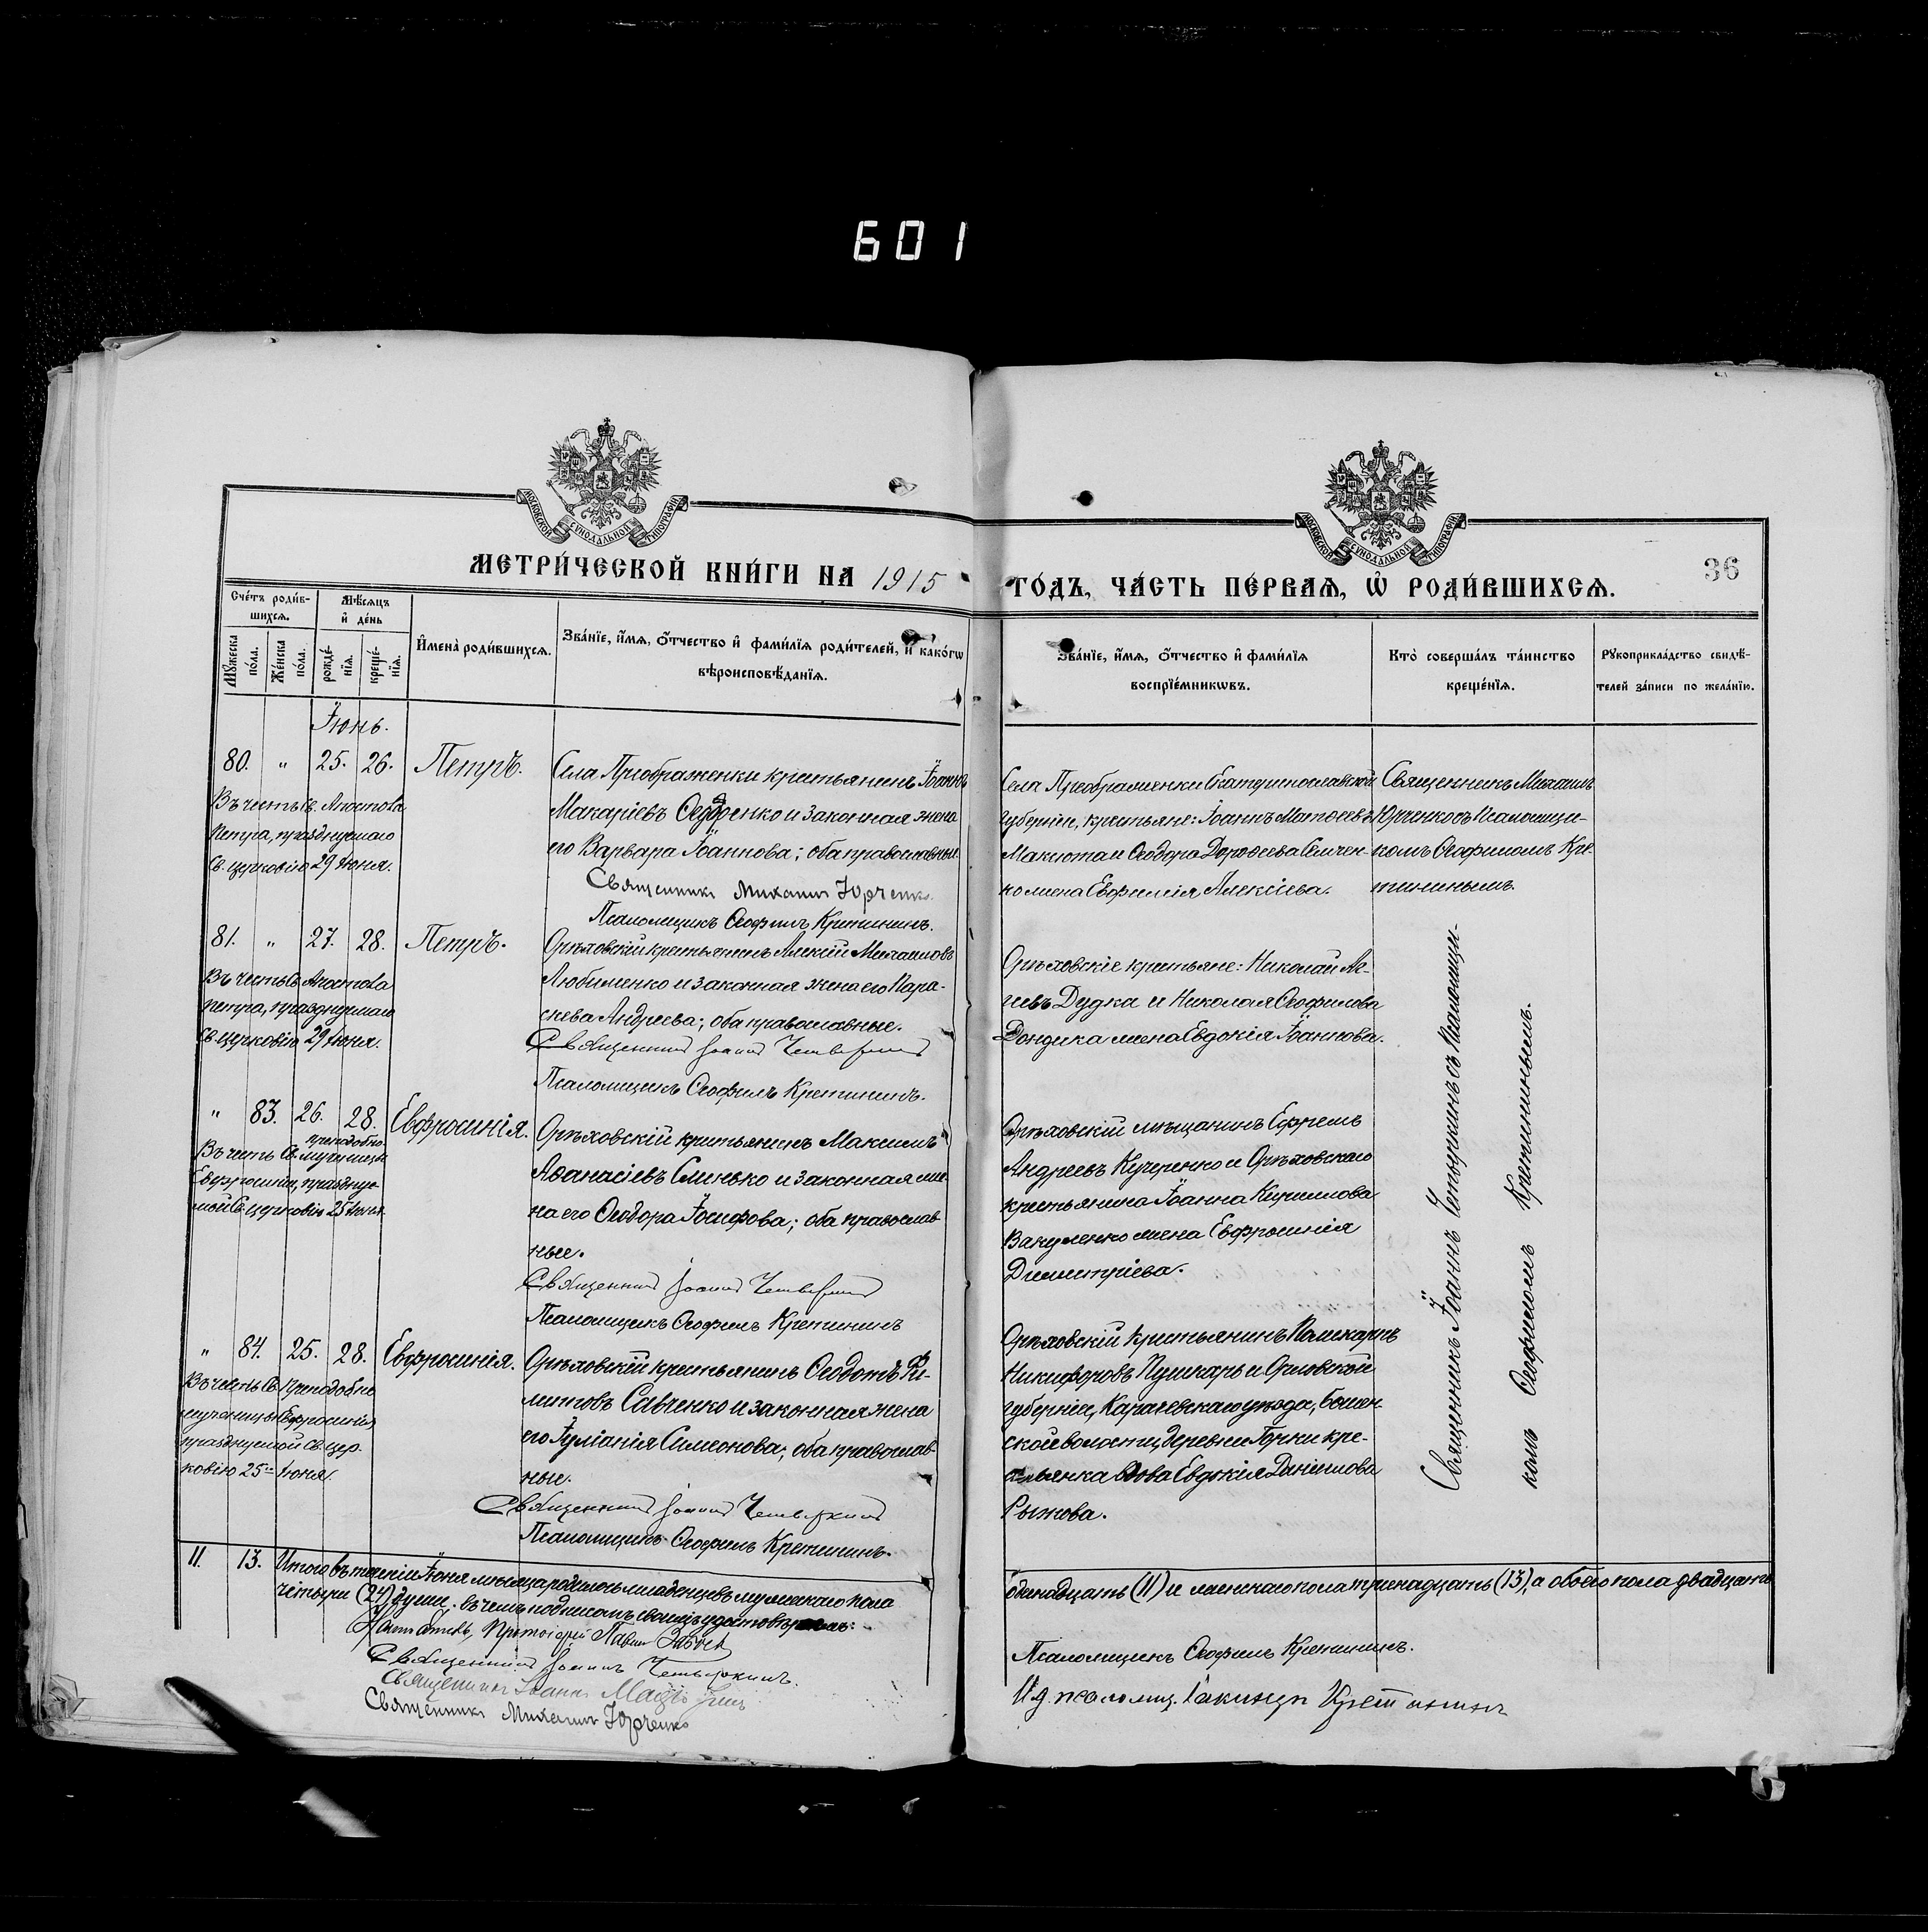 601
МОСКОВСКОЙ СѴНОДАЛЬНОЙ ТИПОГРАФІИ
МОСКОВСКОЙ СѴНОДАЛЬНОЙ ТИПОГРАФІИ
МЕТРИ́ЧЕСКОЙ КНИ́ГИ НА 1915
ГО́ДЪ, ЧА́СТЬ ПЕ́РВАѦ, Ѡ҆ РОДИ́ВШИХСѦ.
36
Сче́тъ роди́в-
шихсѧ.
Мꙋ́жеска
по́ла.
Же́нска
по́ла.
Мѣ́сѧцъ
и҆ де́нь
рожде́-
нїѧ.
креще́-
нїѧ.
И҆мена̀ роди́вшихсѧ.
Зва́нїе, и҆́мѧ, ѻ҆́тчество и҆ фами́лїѧ роди́телей, и҆ како́гѡ
вѣроисповѣ́данїѧ.
Зва́нїе, и҆́мѧ, ѻ҆́тчество и҆ фами́лїѧ
воспрїе́мникѡвъ.
Кто̀ соверша́лъ та́инство
креще́нїѧ.
Рꙋкоприкла́дство свидѣ́-
телей за́писи по жела́нїю.
Іюнь.
80. " 25. 26. Петръ.
Въ честь Св. Апостола
Петра, празднуемаго
Св. церковію 29 Іюня.
Села Преображенки крестьянинъ Іоаннъ
Макаріевъ Ѳедоренко и законная жена
его Варвара Іоаннова; оба православные.
Священникъ Михаилъ Юрченко.
Псаломщикъ Ѳеофилъ Кретининъ.
Села Преображенки Екатеринославской
губерніи, крестьяне: Іоаннъ Матѳеевъ
Макиота и Ѳеодора Дороѳеева Семчен-
ко жена Евфимія Алексіева.
Священникъ Михаилъ
Юрченко съ Псаломщи-
комъ Ѳеофиломъ Кре-
тининымъ.
81. " 27. 28. Петръ.
Въ честь Св. Апостола
Петра, празднуемаго
Св. церковію 29 Іюня.
Орѣховскій крестьянинъ Алексій Михаиловъ
Любименко и законная жена его Пара-
скева Андреева; оба православные.
Священникъ Іоаннъ
Псаломщикъ Ѳеофилъ Кретининъ.
Орѣховскіе крестьяне: Николай
Дудка и Николая Ѳеофилова
Дондика жена Евдокія Іоаннова.
" 83. 26. 28. Евфросинія.
преподобно
Въ честь Св. мученицы
Евфросиніи, праздную-
мой Св. церковію 25 Іюня.
Орѣховскій крестьянинъ Максимъ
Аѳанасіевъ Слинько и законная же-
на его Ѳеодора Іосифова; оба православ-
ные.
Священникъ Іоаннъ
Псаломщикъ Ѳеофилъ Кретининъ
Орѣховскій мѣщанинъ Ефремъ
Андреевъ Кучеренко и Орѣховскаго
крестьянина Іоанна Кириллова
Вакуленко жена Евфросинія
Димитріева.
" 84. 25. 28. Евфросинія.
Въ честь Св. преподобно
мученицы Евфросиніи,
празднуемой Св. цер-
ковію 25 Іюня.
Орѣховскій крестьянинъ Ѳеодотъ Фи-
липповъ Савченко и законная жена
его Іуліанія Симеонова; оба православ-
ные.
Священникъ Іоаннъ
Псаломщикъ Ѳеофилъ Кретининъ.
Орѣховскій крестьянинъ Поликарпъ
Никифоровъ Пушкарь и Орловской
губерніи, Карачевскаго уѣзда,
ской волости, деревни Горки кре-
стьянка вдова Евдокія Даніилова
Рыжова.
Священникъ Іоаннъ съ Псаломщи-
комъ Ѳеофиломъ Кретининымъ.
11. 13. Итого въ теченіи Іюня мѣсяца родилось младенцевъ мужескаго пола
одинадцать (11) и женскаго пола тринадцать (13), а обоего пола двадцать
четыре (24) души. въ чемъ подписомъ своимъ удостовѣряемъ:
Протоіерей Павелъ
Священникъ Іоаннъ
Священникъ Іоаннъ
Священникъ Михаилъ Юрченко
Псаломщикъ Ѳеофилъ Кретининъ.
И.д. псаломщ. Іакинѳъ Кретининъ